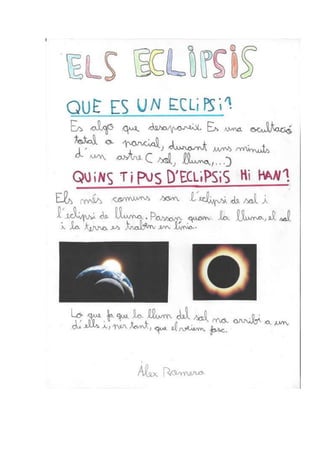 ELS ECLIPSIS
QUE ES UN ECLIPSI?
Es algo que desapareix. Es una ocultació
total o parcial, durant uns minuts
d'un astre (sol, lluna,...)
QUINS TIPUS D'ECLIPSIS HI HAN?
Els més comuns son l'eclipsi de sol i
l'eclipsi de lluna. Passan quan la lluna, el sol
i la terra es trabin en linia.
Lo que fa que la llum del sol no arribi a un
d'ells i, per tant, que el veiem fosc.
Àlex Ramera